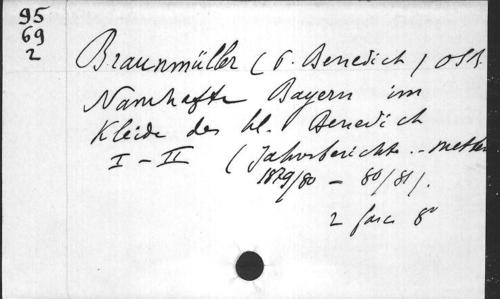 95
69
2
Braunmüller (P. Benedich) OSB.
Namhafte Bayern im
Kleide des hl. Benedich
I - II (Jahresberichte .. Metten
1879/80 - 80/81).
2 fasc 8°